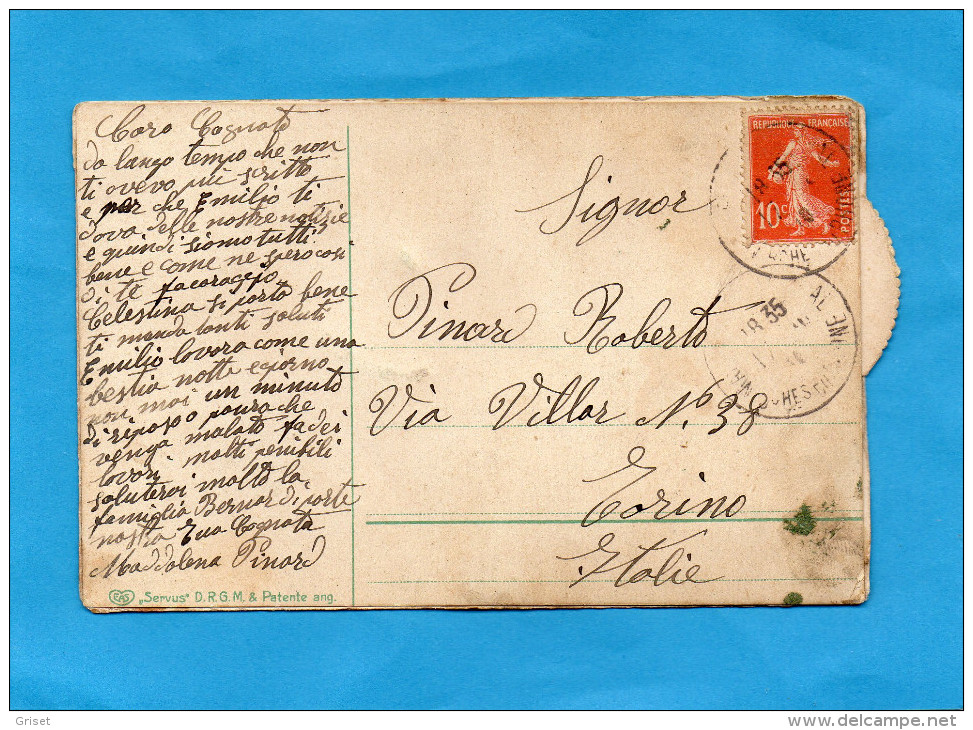 Caro Cognato
da lango tempo che non
ti ovevo più scritto
e per che Emilio ti
dova delle nostre notizie
e quindi siomo tutti
bene e come ne spero cosi
di te facoraggio
Celestina si porta bene
ti manda tanti saluti
Emilio lovora come una
bestia notte e giorno
non mai un minuto
di riposo poura che
venga malato fa dei
lovori molti penibili
saluteroi molto la
famiglia Bernardi parte
nostra Tua Cognata
Maddolena Pinard
„Servus" D.R.G.M. & Patente ang.
REPUBLIQUE FRANÇAISE
10c
POSTES
18 35
18 35
Signor
Pinard Roberto
Via Villar No. 38
Torino
Italie
Griset
www.delcampe.net